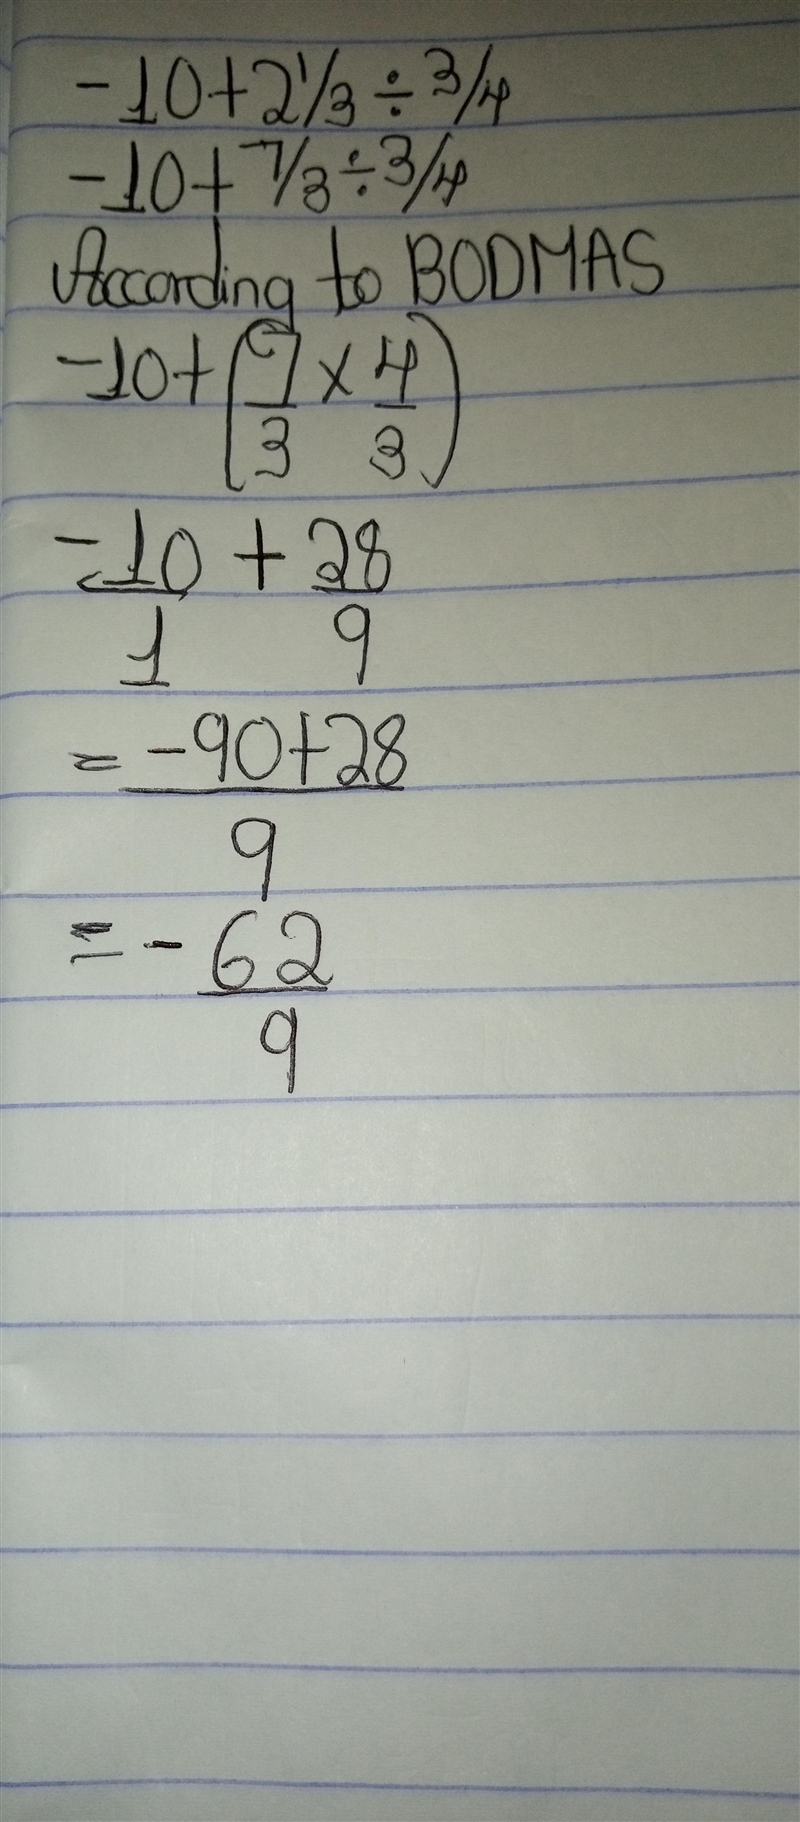 -10+2 1/3 ÷ 3/4
-10+7/3÷3/4
According to BODMAS
-10+(7/3 x 4/3)
-10/1 + 28/9
= -90+28/9
= -62/9